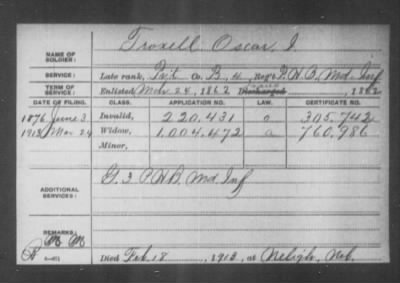 Troxell Oscar I.
NAME OF SOLDIER:
SERVICE: Late rank, Pvt Co. B, 4, Reg't P.H.B. Md. Inf
TERM OF SERVICE: Enlisted Mch. 24, 1862 Discharged, 1862
DATE OF FILING. CLASS. APPLICATION NO. LAW. CERTIFICATE NO.
1876 June 3 Invalid, 220.431 305.742
1913 Mar 24 Widow, 1.004.472 a 760.986
Minor,
ADDITIONAL SERVICES: G. 3 P.H.B. Md. Inf
REMARKS:
M M
Died Feb. 18, 1913, at Neligh, Neb.